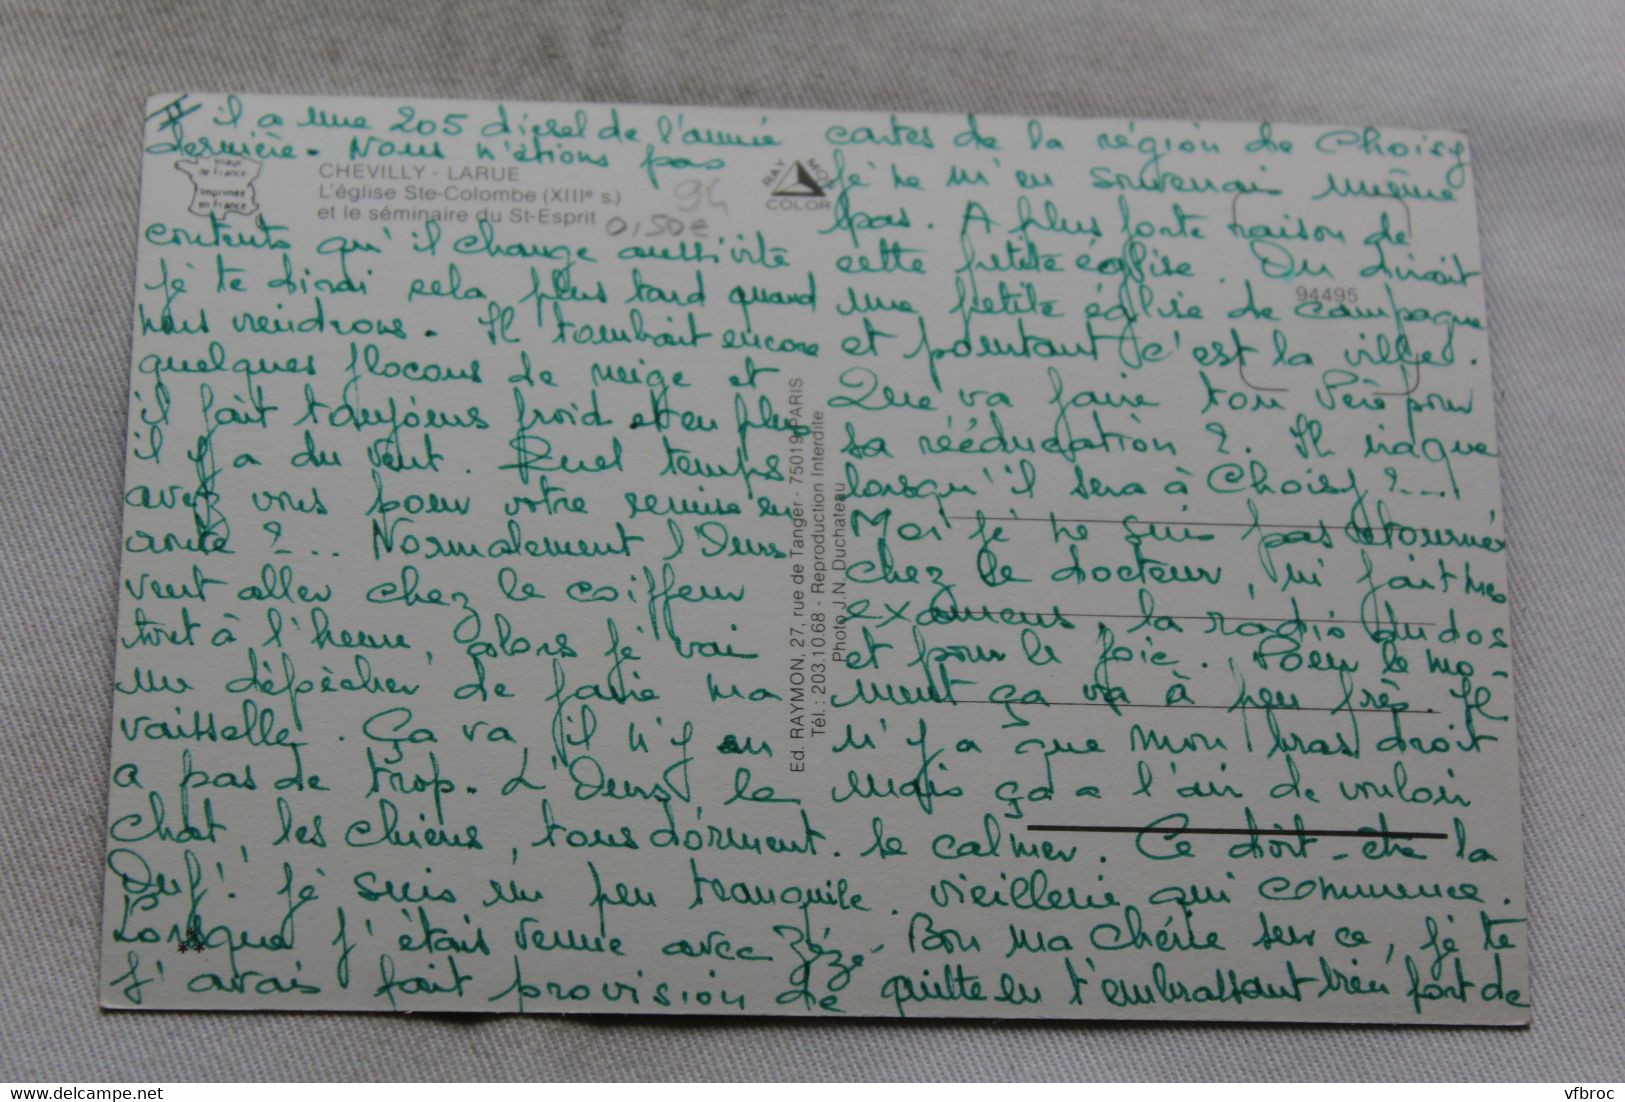 II il a une 205 diesel de l'année
dernière. Nous n'étions pas
contents qu'il change aussi vite
je te dirai cela plus tard quand
nous viendrons. Il tombait encore
quelques flocons de neige et
il fait toujours froid et en plus
il y a du vent. Quel temps
avez vous pour votre remise en
route ?... Normalement l'Ours
veut aller chez le coiffeur
tout à l'heure, alors je vais
me dépêcher de faire ma
vaisselle. Ça va, il n'y en
a pas de trop. L'Ours, le
chat, les chiens, tous dorment.
Ouf! je suis un peu tranquile.
Lorsque j'étais venue avec Zézé
j'avais fait provision de
cartes de la région de Choisy
je ne m'en souvenais même
pas. A plus forte raison de
cette petite église. On dirait
une petite église de campagne
et pourtant c'est la ville.
Que va faire ton Père pour
sa rééducation ?. Il risque
lorsqu'il sera à Choisy ?...
Moi je ne suis pas retournée
chez le docteur, ni fait mes
examens, la radio du dos
et pour le foie. Pour le mo-
ment ça va à peu près. Il
n'y a que mon bras droit
mais ça a l'air de vouloir
se calmer. Ce doit-être la
vieillerie qui commence.
Bon ma Chérie sur ce, je te
quitte en t'embrassant bien fort de
de France
Imprimée
en France
CHEVILLY - LARUE
L'église Ste-Colombe (XIIIe s.)
et le séminaire du St-Esprit
94
0,50€
RAYMON
COLOR
94495
Ed. RAYMON, 27, rue de Tanger - 75019 PARIS
Tél.: 203.10.68 - Reproduction Interdite
Photo J.N. Duchateau
***
vfbroc
https://www.delcampe.net